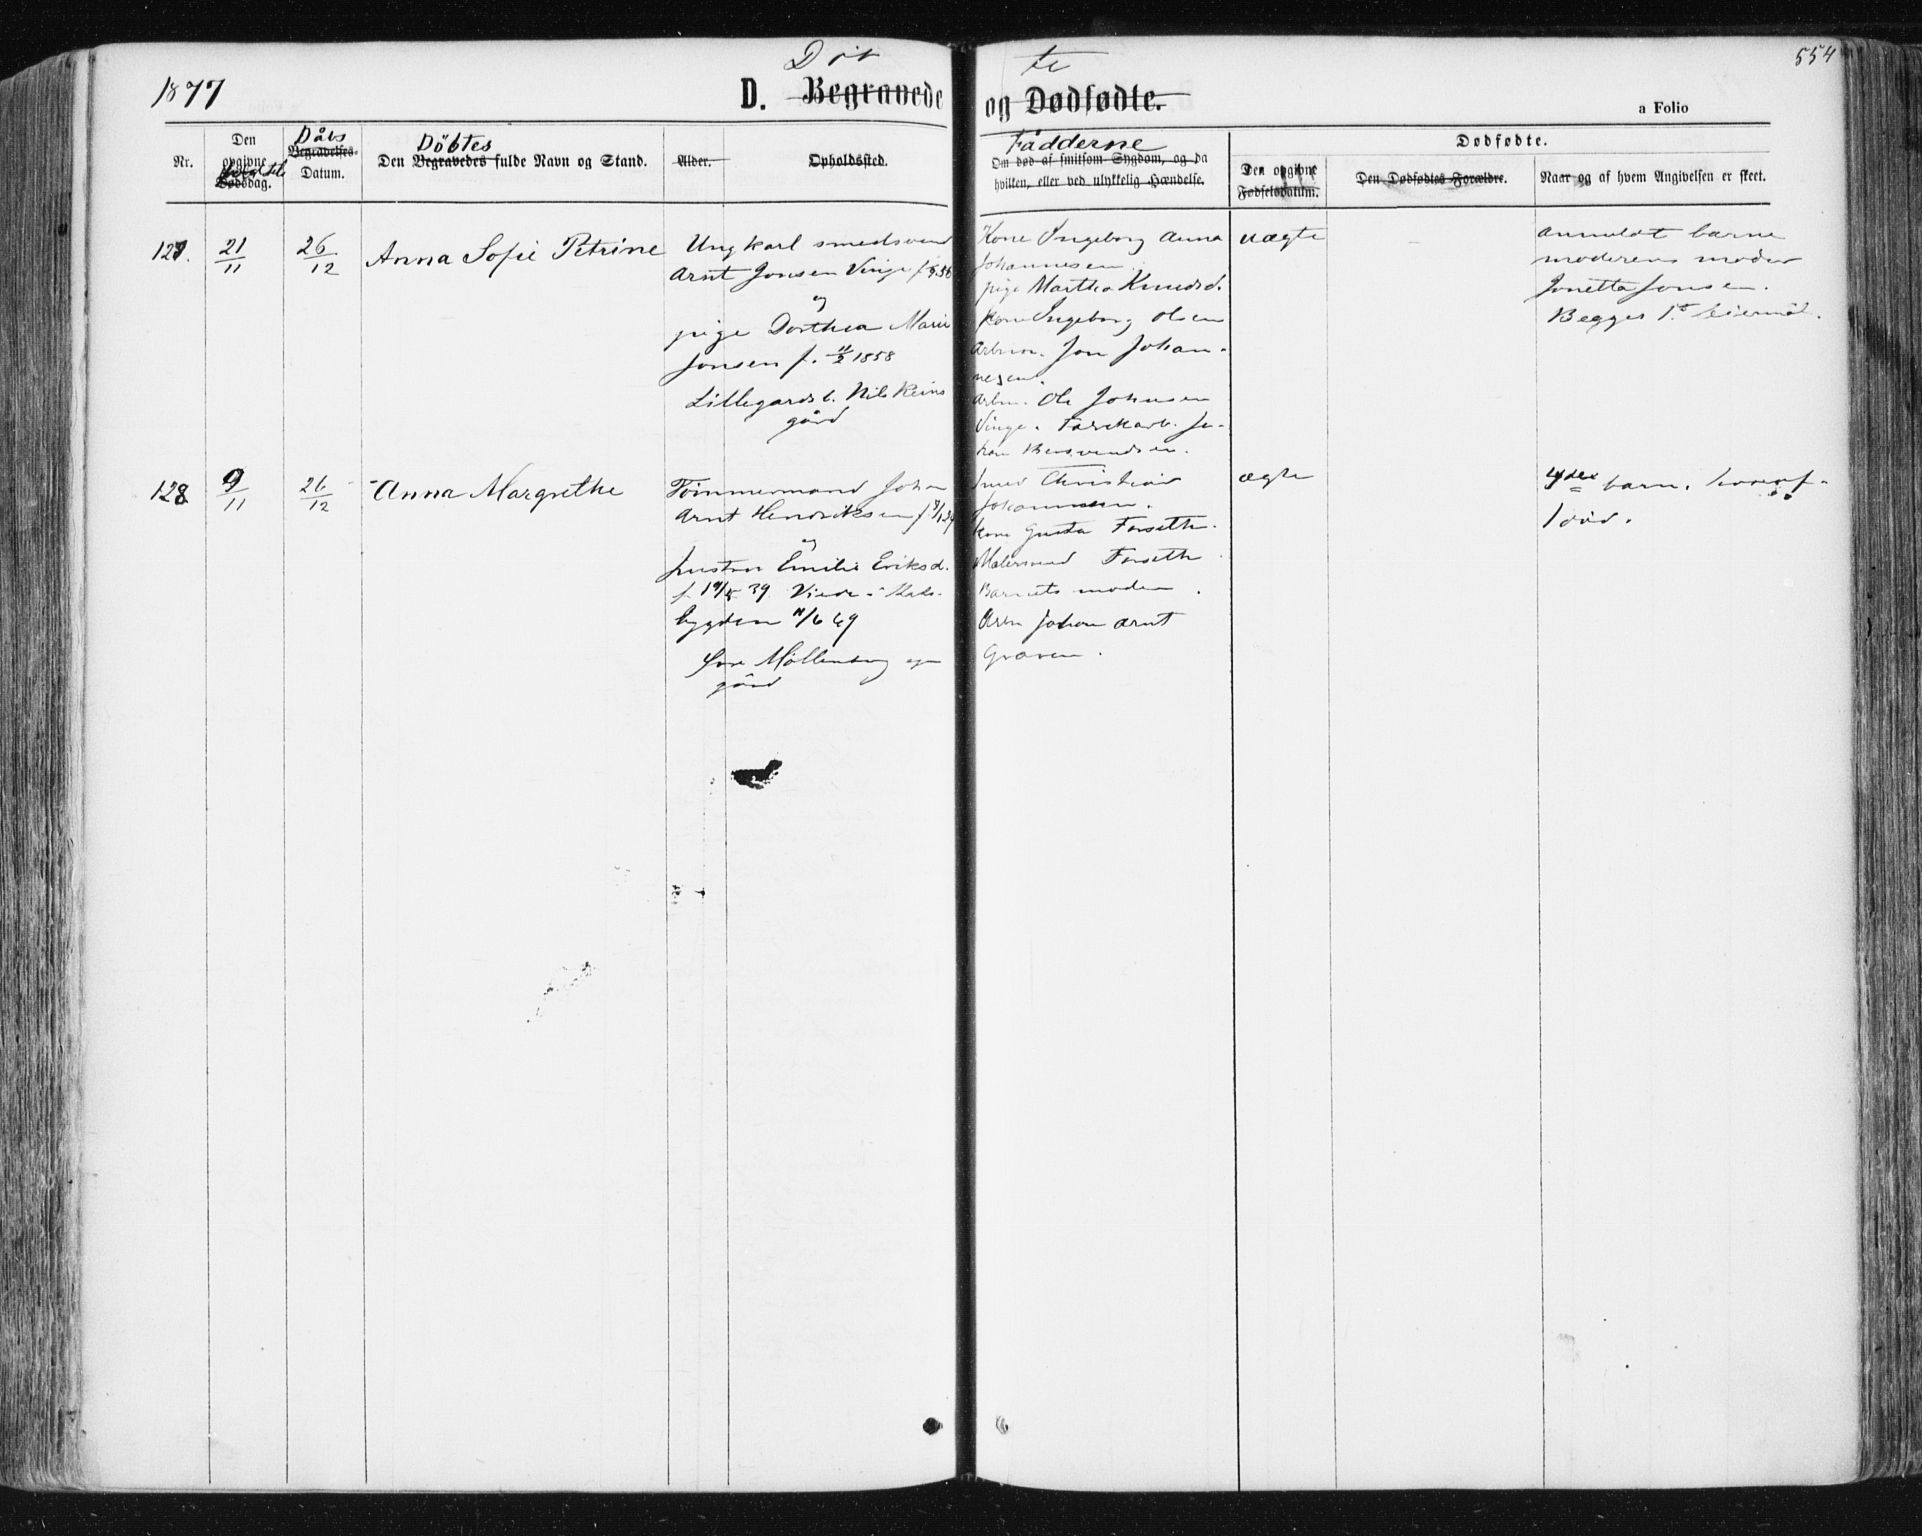 1877
Döb te
554
D. Begravede og Dødfødte.
a Folio
Nr.
Den opgivne Dødsdag.
Dåbs
Begravelses-Datum.
Döbtes
Den Begravedes fulde Navn og Stand.
Alder.
Opholdssted.
Fadderne
Om død af smitsom Sygdom, og da
hvilken, eller ved ulykkelig Hændelse.
Dødfødte.
Den opgivne
Fødselsdatum.
Den Dødfødtes Forældre.
Naar og af hvem Angivelsen er skeet.
127. 21/11 26/12 Anna Sofie Petrine
Ungkarl smedsvend
Arnt Jonsen Vinge f.
og
pige Dorthea Marie
Jonsen f. 1858
Lillegards b. Nils Reins
gård
Kone Ingeborg Anna
Johannesen.
pige Martha Knudsd.
Kone Ingeborg Olsen
Arbm. Jon Johan-
nesen.
Arbm. Ole Johnsen
Vinge.
uægte
anmeldt barne
moderens moder
Jonetta Jonsen.
Begges 1st leiermål.
128 9/11 26/12 Anna Margrethe
Tömmermand Johan
Arnt Hendriksen
og
hustru Emilie Eriksd.
f. 39. Viede i Stads-
bygden 11/6 69
Övre Möllenberg egen
gård
Smed Christian
Johannsen.
Kone Gusta Forseth.
Malersvend Forseth
Barnets moder.
Arbm Johan Arnt
Graven.
ægte
4de barn. hvoraf
1 död.